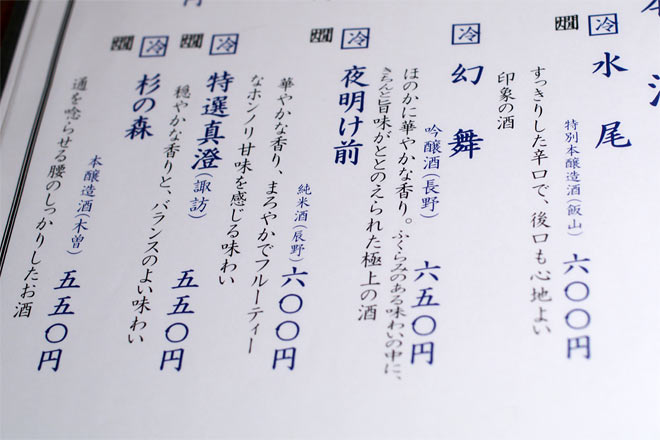 燗 冷 水尾
特別本醸造酒(飯山) 六〇〇円
すっきりした辛口で、後口も心地よい
印象の酒
冷 幻舞
吟醸酒(長野) 六五〇円
ほのかに華やかな香り。ふくらみのある味わいの中に、
きちんと旨味がととのえられた極上の酒
燗 冷 夜明け前
純米酒(辰野) 六〇〇円
華やかな香り、まろやかでフルーティー
なホンノリ甘味を感じる味わい
燗 冷 特選真澄(諏訪) 五五〇円
穏やかな香りと、バランスのよい味わい
燗 冷 杉の森
本醸造酒(木曽) 五五〇円
通を唸らせる腰のしっかりしたお酒
円